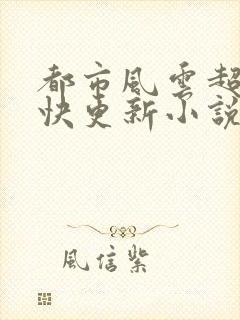 都市風雲超
快更新小說
風信紫